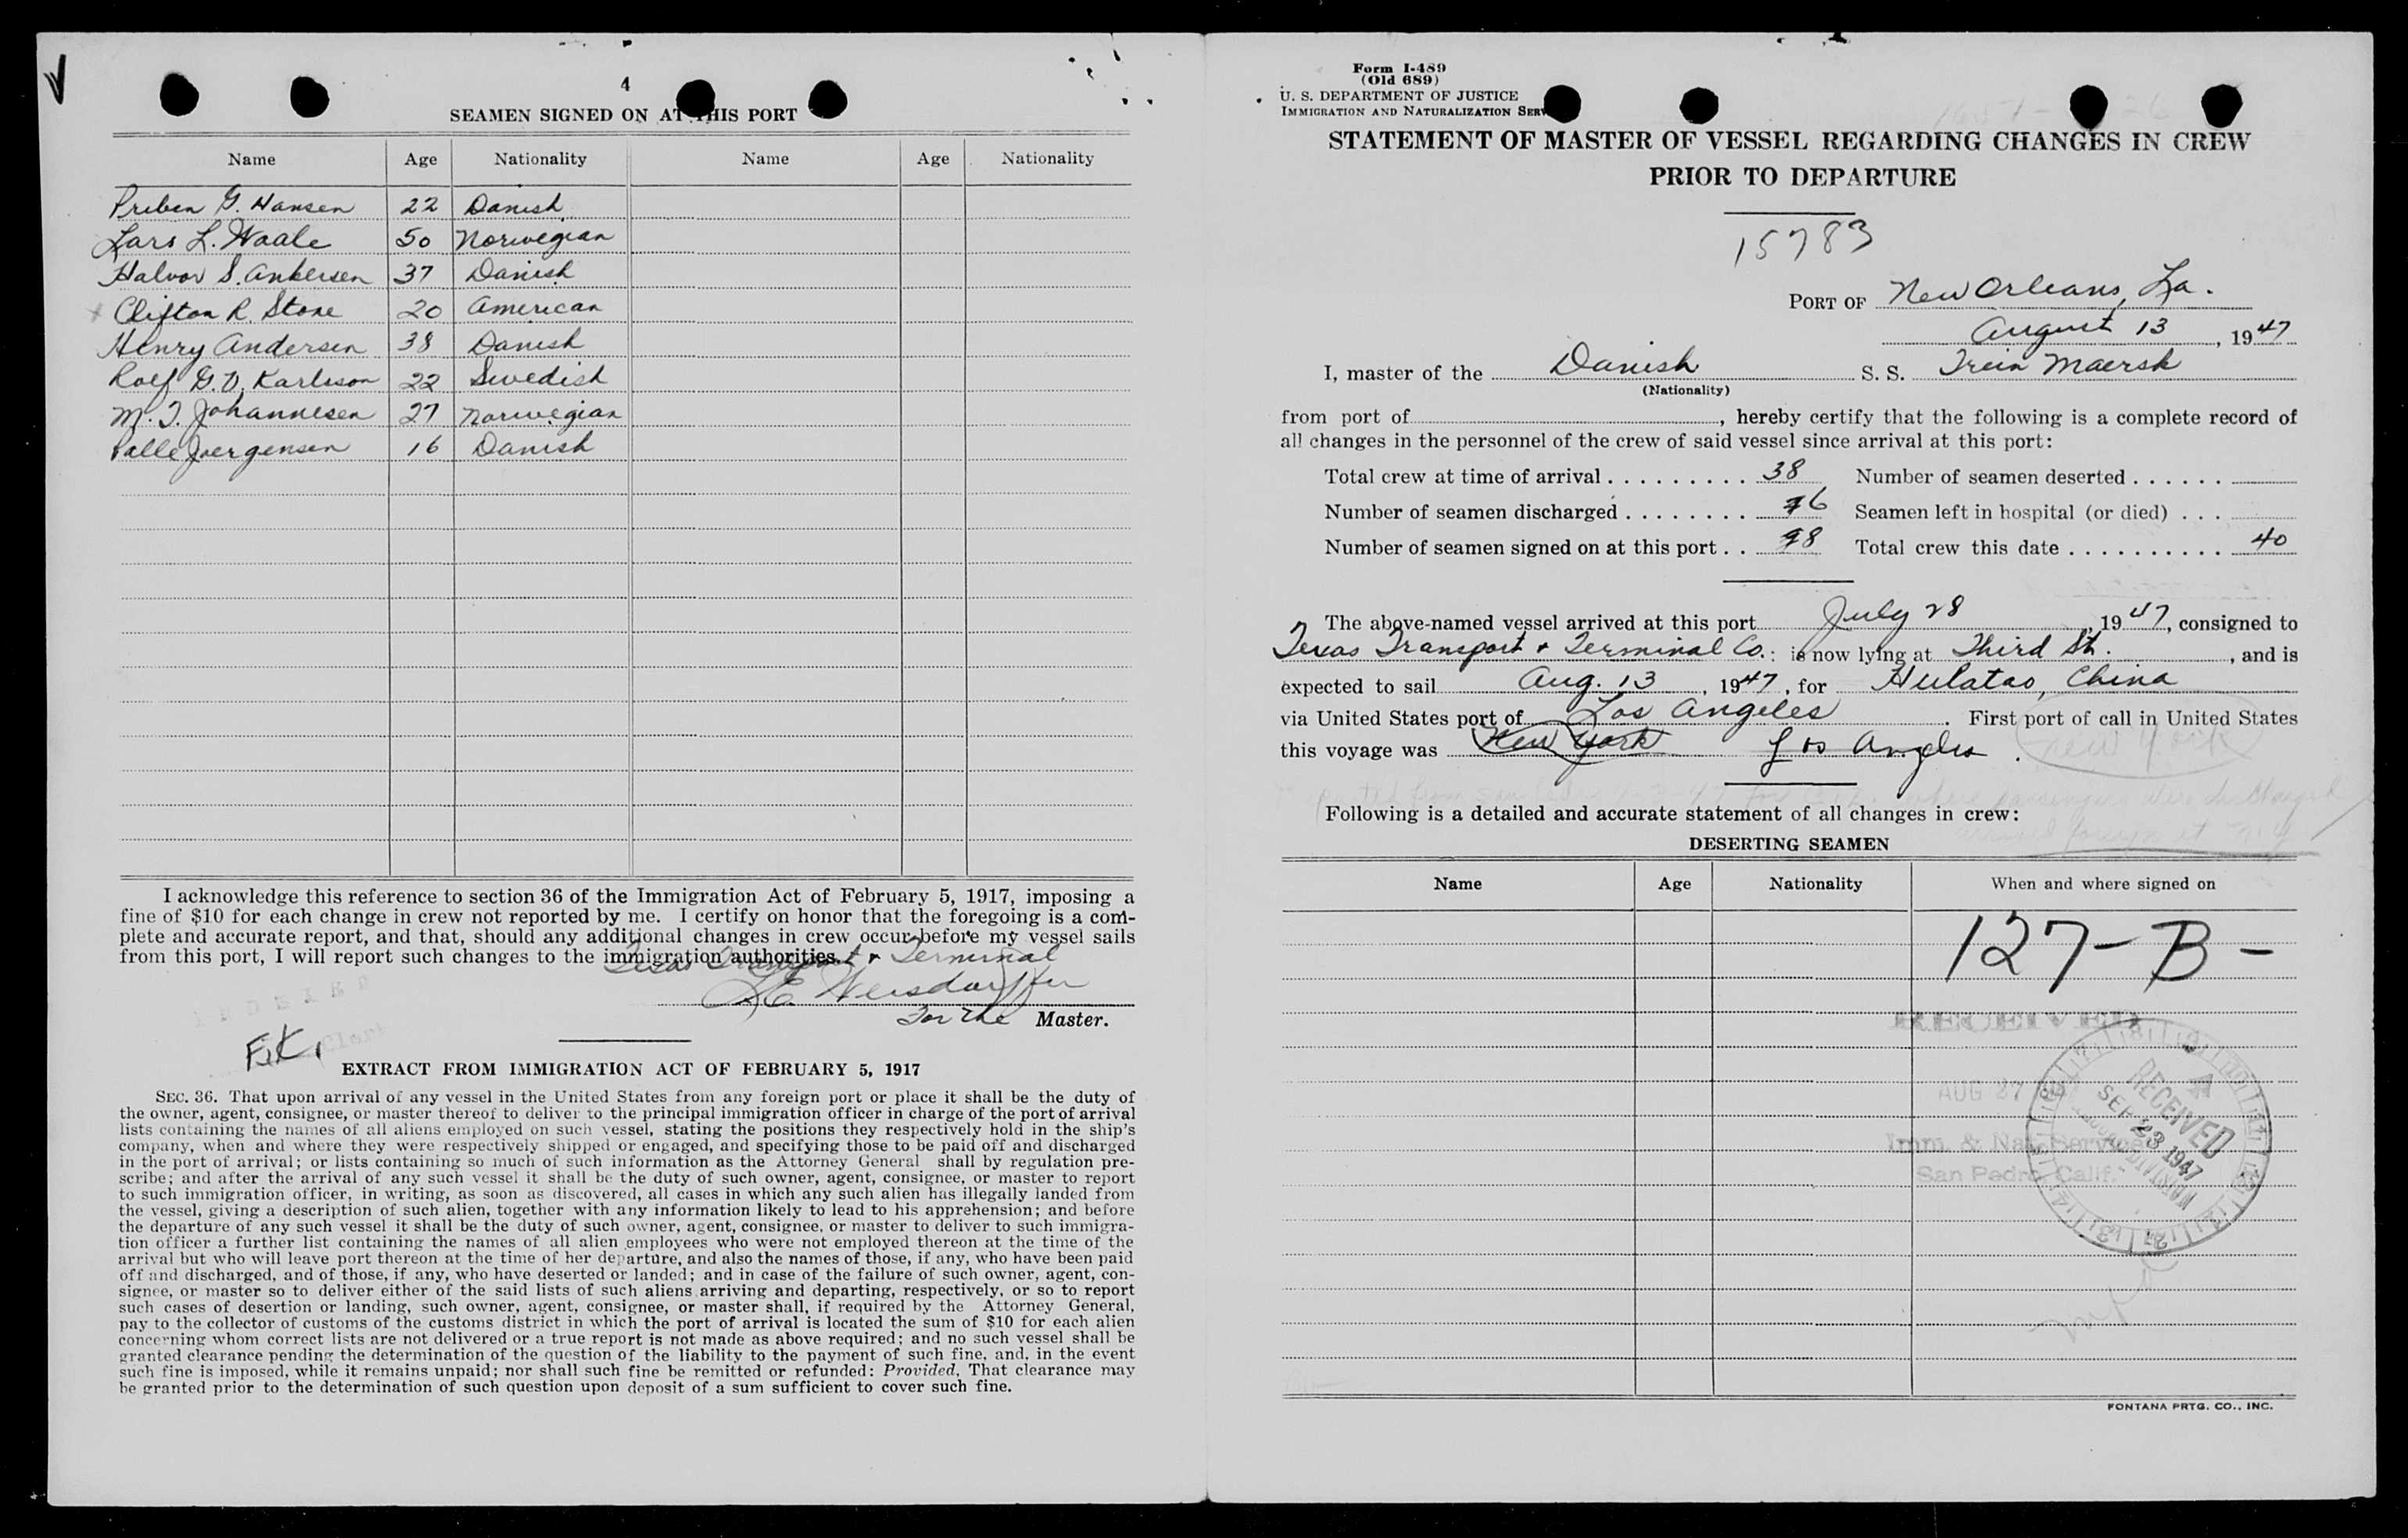 4
SEAMEN SIGNED ON AT THIS PORT
Name Age Nationality Name Age Nationality
Preben G. Hansen 22 Danish
Lars L. Waale 50 Norwegian
Halvor S. Ankersen 37 Danish
Clifton R. Stone 20 American
Henry Andersen 38 Danish
Rolf G. V. Karlsson 22 Swedish
M. T. Johannesen 27 Norwegian
Palle Joergensen 16 Danish
I acknowledge this reference to section 36 of the Immigration Act of February 5, 1917, imposing a
fine of $10 for each change in crew not reported by me. I certify on honor that the foregoing is a com-
plete and accurate report, and that, should any additional changes in crew occur before my vessel sails
from this port, I will report such changes to the immigration authorities.
Texas Transport & Terminal
For the Master.
F.K.
EXTRACT FROM IMMIGRATION ACT OF FEBRUARY 5, 1917
SEC. 36. That upon arrival of any vessel in the United States from any foreign port or place it shall be the duty of
the owner, agent, consignee, or master thereof to deliver to the principal immigration officer in charge of the port of arrival
lists containing the names of all aliens employed on such vessel, stating the positions they respectively hold in the ship's
company, when and where they were respectively shipped or engaged, and specifying those to be paid off and discharged
in the port of arrival; or lists containing so much of such information as the Attorney General shall by regulation pre-
scribe; and after the arrival of any such vessel it shall be the duty of such owner, agent, consignee, or master to report
to such immigration officer, in writing, as soon as discovered, all cases in which any such alien has illegally landed from
the vessel, giving a description of such alien, together with any information likely to lead to his apprehension; and before
the departure of any such vessel it shall be the duty of such owner, agent, consignee, or master to deliver to such immigra-
tion officer a further list containing the names of all alien employees who were not employed thereon at the time of the
arrival but who will leave port thereon at the time of her departure, and also the names of those, if any, who have been paid
off and discharged, and of those, if any, who have deserted or landed; and in case of the failure of such owner, agent, con-
signee, or master so to deliver either of the said lists of such aliens arriving and departing, respectively, or so to report
such cases of desertion or landing, such owner, agent, consignee, or master shall, if required by the Attorney General,
pay to the collector of customs of the customs district in which the port of arrival is located the sum of $10 for each alien
concerning whom correct lists are not delivered or a true report is not made as above required; and no such vessel shall be
granted clearance pending the determination of the question of the liability to the payment of such fine, and, in the event
such fine is imposed, while it remains unpaid; nor shall such fine be remitted or refunded: Provided, That clearance may
be granted prior to the determination of such question upon deposit of a sum sufficient to cover such fine.
Form I-489
(Old 689)
U. S. DEPARTMENT OF JUSTICE
IMMIGRATION AND NATURALIZATION SERV
STATEMENT OF MASTER OF VESSEL REGARDING CHANGES IN CREW
PRIOR TO DEPARTURE
15783
PORT OF New Orleans, La.
August 13, 1947
I, master of the Danish S. S. Trein Maersk
(Nationality)
from port of , hereby certify that the following is a complete record of
all changes in the personnel of the crew of said vessel since arrival at this port:
Total crew at time of arrival 38 Number of seamen deserted
Number of seamen discharged 6 Seamen left in hospital (or died)
Number of seamen signed on at this port 8 Total crew this date 40
The above-named vessel arrived at this port July 28, 1947, consigned to
Texas Transport & Terminal Co.: is now lying at Third St., and is
expected to sail Aug. 13, 1947, for Hulatao, China
via United States port of Los Angeles. First port of call in United States
this voyage was New York Los Angeles. New York
Following is a detailed and accurate statement of all changes in crew:
DESERTING SEAMEN
Name Age Nationality When and where signed on
127-B-
RECEIVED
AUG 27
Imm. & Nat. Service
San Pedro, Calif.
RECEIVED
SEP 23 1947
FONTANA PRTG. CO., INC.